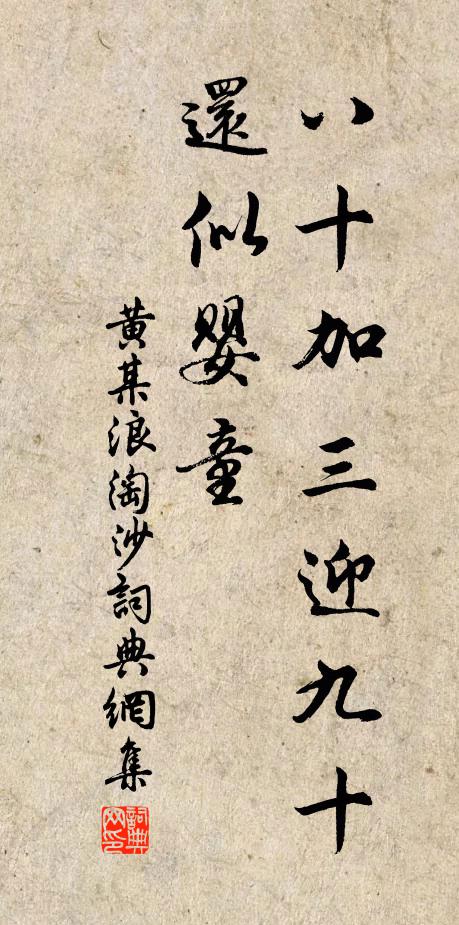 八十加三迎九十
還似嬰童
黄某浪淘沙詞典網集
詞典网印